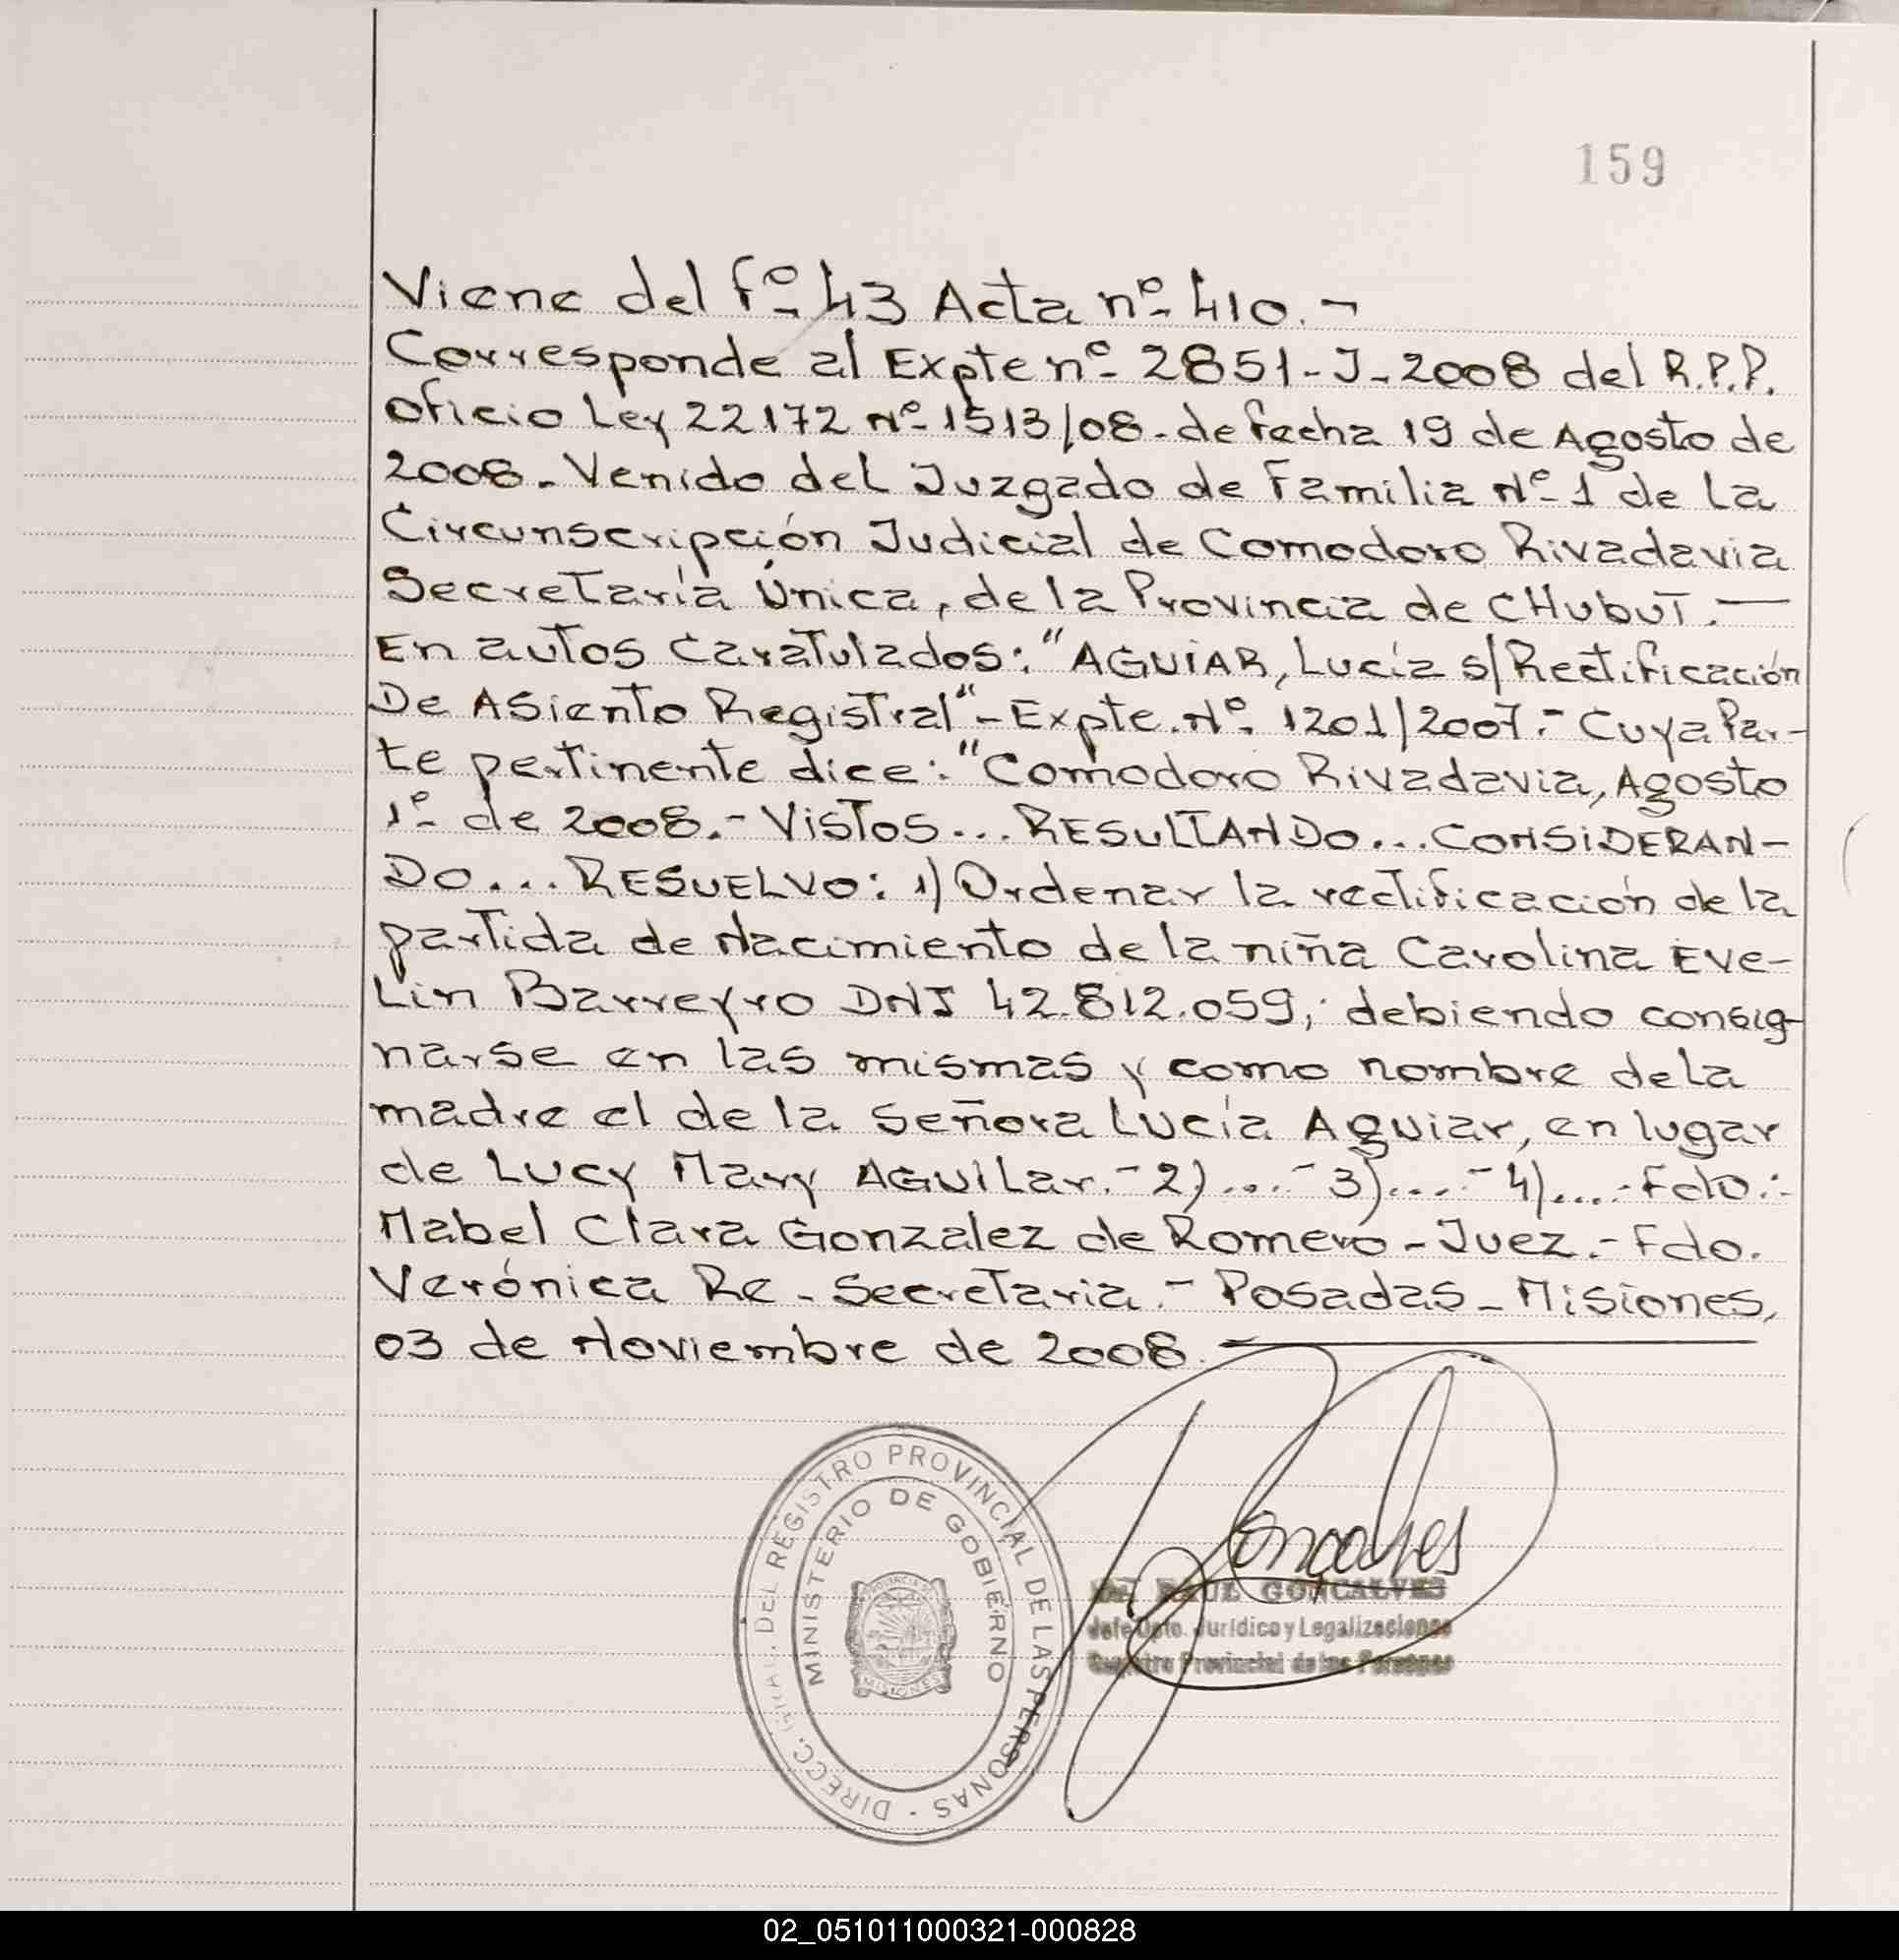 159
Viene del fº 43 Acta nº 410.-
Corresponde al Expte nº 2851-J-2008 del R.P.P.
Oficio Ley 22172 Nº 1513/08. de fecha 19 de Agosto de
2008. Venido del Juzgado de Familia Nº 1 de La
Circunscripción Judicial de Comodoro Rivadavia
Secretaría Única, de la Provincia de CHubuT.—
En autos CaraTulados: "AGUiAR, Lucía s/Rectificación
De ASiento RegisTral"- Expte. Nº. 1201/2007.- Cuya Par-
te pertinente dice: "Comodoro Rivadavia, Agosto
1º de 2008.- VisTos... RESULTANDo... CONSiDERAN-
Do... RESUELVO: 1) Ordenar la rectificación de la
parTida de Nacimiento de la niña Carolina Eve-
Lin Barreyro DNI 42.812.059; debiendo consig-
narse en las mismas y como nombre de la
madre el de la Señora Lucía Aguiar, en lugar
de Lucy Mary AGUiLar.- 2)....- 3)....- 4)....- Fdo.:
Mabel Clara Gonzalez de Romero - Juez.- Fdo.
Verónica Re - SecreTaria.- Posadas - Misiones,
03 de Noviembre de 2008.
DIRECC. GRAL. DEL REGISTRO PROVINCIAL DE LAS PERSONAS
MINISTERIO DE GOBIERNO
MISIONES
Goncalves
RAUL GONCALVES
Jefe Dpto. Jurídico y Legalizaciones
Registro Provincial de las Personas
02_051011000321-000828